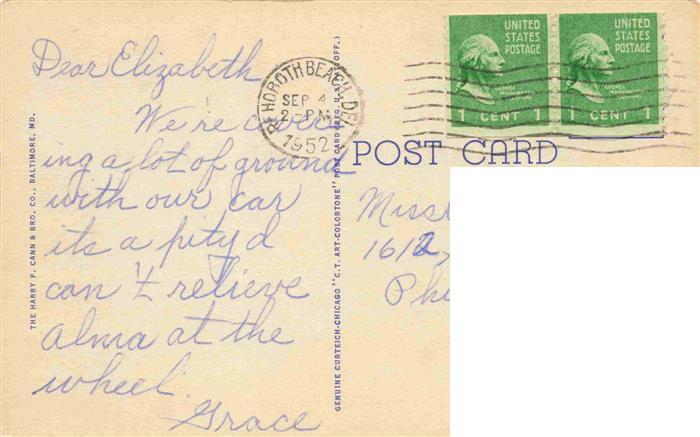 Dear Elizabeth
We're cover
ing a lot of ground
with our car
its a pity I
can't relieve
Alma at the
wheel.
Grace
THE HARRY P. CANN & BRO. CO., BALTIMORE, MD.
GENUINE CURTEICH-CHICAGO "C.T. ART-COLORTONE" POST CARD (REG. U.S. PAT. OFF.)
REHOBOTH BEACH, DEL.
SEP 4
2-PM
1952
UNITED
STATES
POSTAGE
GEORGE
WASHINGTON
1 CENT 1
UNITED
STATES
POSTAGE
GEORGE
WASHINGTON
1 CENT 1
POST CARD
Miss
1612
Phi